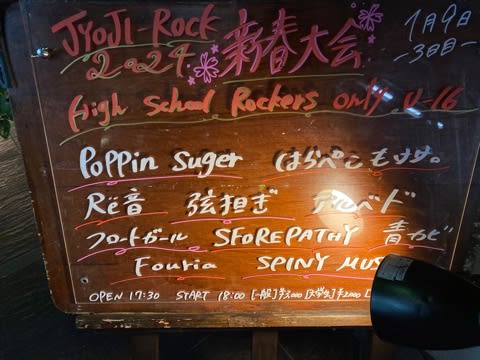 JYOJI-ROCK
2024 新春大会 1月9日
-3日目-
High School Rockers only U-16
POPPin Suger はらぺこもササ。
Rë音 弦担ぎ デルベド
フロートガール SFOREPATHY 青カビ
Fouria SPINY MUS
OPEN 17:30 START 18:00 [一般] ¥3,000 [大学生] ¥2,000